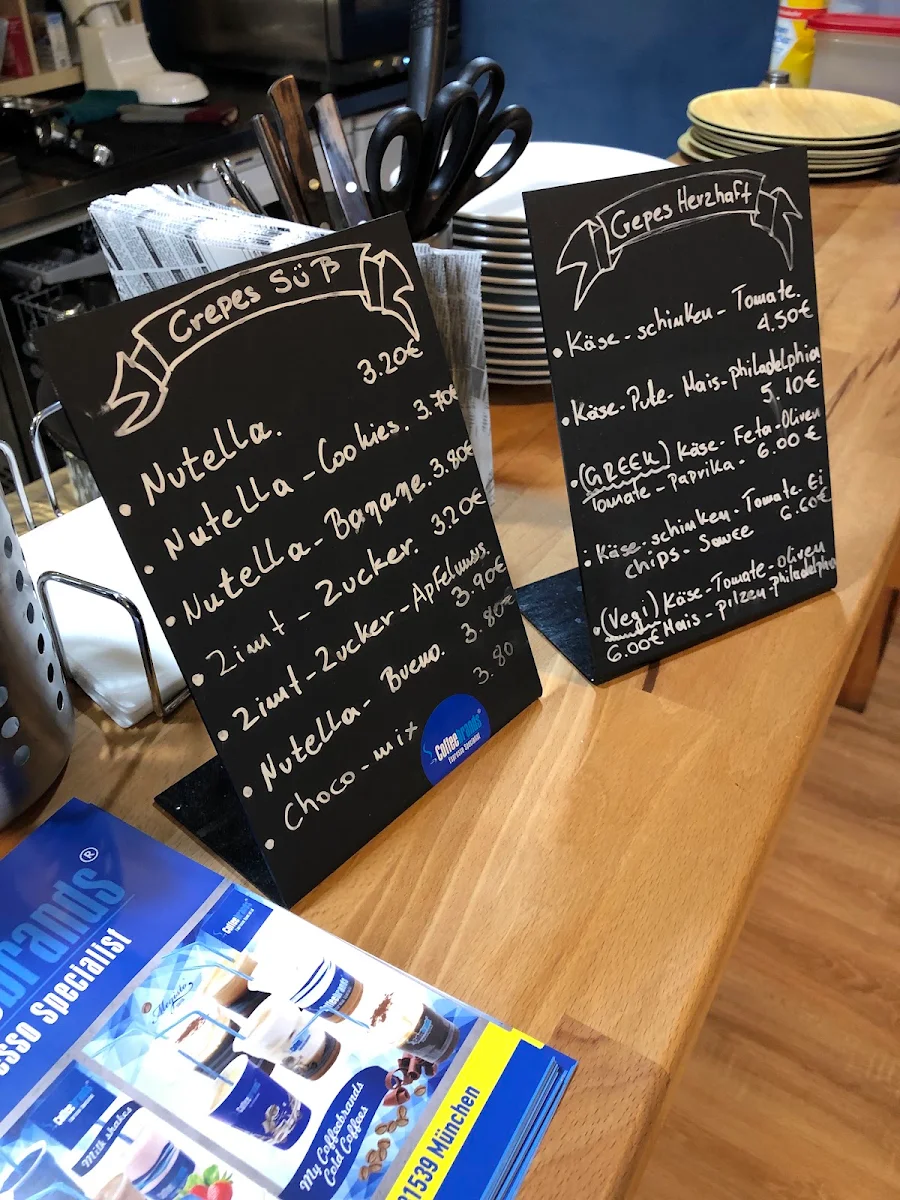 Crepes Süß
• Nutella. 3.20€
• Nutella - Cookies. 3.70€
• Nutella - Banane. 3.80€
• Zimt - Zucker. 3.20€
• Zimt - Zucker - Apfelmus. 3.90€
• Nutella - Bueno. 3.80€
• Choco - mix 3.80
Coffeebrands®
Espresso Specialist
Crepes Herzhaft
• Käse - schinken - Tomate.
4.50€
• Käse - Pute - Mais - philadelphia
5.10€
• (GREEK) Käse - Feta - Oliven
Tomate - Paprika - 6.00€
• Käse - schinken - Tomate - Ei
chips - Sauce 6.60€
• (Vegi) Käse - Tomate - oliven
6.00€ Mais - pilzen - philadelphia
brands®
esso Specialist
Coffeebrands
Megusto
Milk shakes
My Coffeebrands
Cold Coffees
81539 München